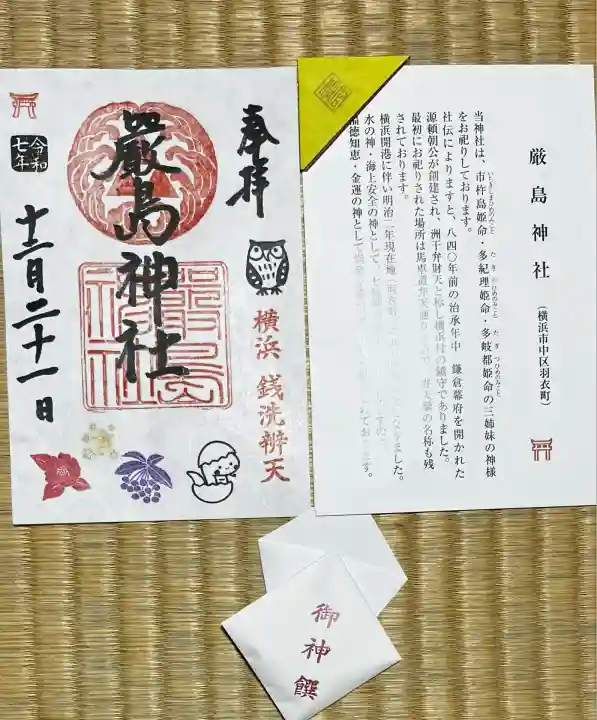 奉拝
厳島神社
嚴島
神社
横浜 銭洗辨天
令和
七年
十二月二十一日
厳島神社
(横浜市中区羽衣町)
当神社は、市杵島姫命・多紀理姫命・多岐都姫命の三姉妹の神様
をお祀りしております。
社伝によりますと、八四〇年前の治承年中 鎌倉幕府を開かれた
源頼朝公が創建され、洲干弁財天と称し横浜村の鎮守でありました。
最初にお祀りされた場所は馬車道弁天通り 弁天橋の名称も残
されております。
横浜開港に伴い明治二年現在地 ました。
水の神・海上安全の神として、
福徳知恵・金運の神として ております。
御神饌